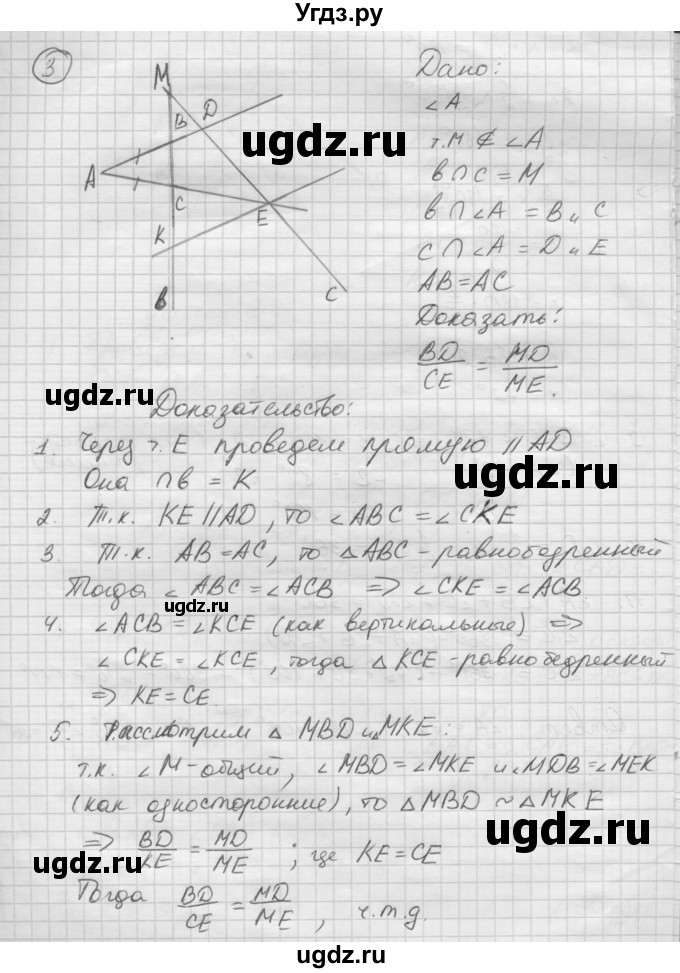 Угдз.ру
3
Дано:
∠A
т.M ∉ ∠A
в∩C = M
в∩∠A = B и C
C∩∠A = D и E
AB=AC
Доказать:
BD/CE = MD/ME.
M
B
D
A
C
K
E
в
C
ugdz.ru
ugdz.ru
ugdz.ru
Доказательство:
1. Через т. E проведем прямую ∥ AD
Она ∩ в = K
ugdz.ru
2. Т.к. KE∥AD, то ∠ABC = ∠CKE
3. Т.к. AB=AC, то △ABC-равнобедренный
Тогда ∠ABC=∠ACB ⇒ ∠CKE = ∠ACB.
ugdz.ru
4. ∠ACB = ∠KCE (как вертикальные) ⇒
∠CKE = ∠KCE, тогда △KCE-равнобедренный
⇒ KE=CE.
5. Рассмотрим △ MBD и △MKE:
т.к. ∠M-общий, ∠MBD=∠MKE и ∠MDB=∠MEK
(как односторонние), то △MBD ~ △MKE
ugdz.ru
ugdz.ru
⇒ BD/KE = MD/ME ; где KE=CE
Тогда BD/CE = MD/ME, ч.т.д.
ugdz.ru